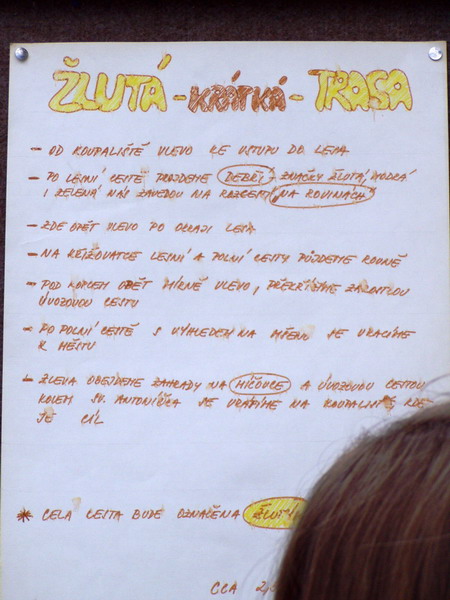 ŽLUTÁ - KRÁTKÁ - TRASA
- OD KOUPALIŠTĚ VLEVO KE VSTUPU DO LESA
- PO LESNÍ CESTĚ PROJDEME DEBŘÍ - ZNAČKY ŽLUTÁ, MODRÁ
I ZELENÁ NÁS ZAVEDOU NA ROZCESTÍ "NA ROVINÁCH"
- ZDE OPĚT VLEVO PO OKRAJI LESA
- NA KŘIŽOVATCE LESNÍ A POLNÍ CESTY PŮJDEME ROVNĚ
- POD KOPCEM OPĚT MÍRNĚ VLEVO, PŘEKŘÍŽÍME
ÚVOZOVOU CESTU
- PO POLNÍ CESTĚ S VÝHLEDEM NA SE VRACÍME
K MĚSTU
- ZLEVA OBEJDEME ZAHRADY NA HÍČOVCE A ÚVOZOVOU CESTOU
KOLEM SV. ANTONÍČKA SE VRÁTÍME NA KOUPALIŠTĚ KDE
JE CÍL
* CELÁ CESTA BUDE OZNAČENA
CCA